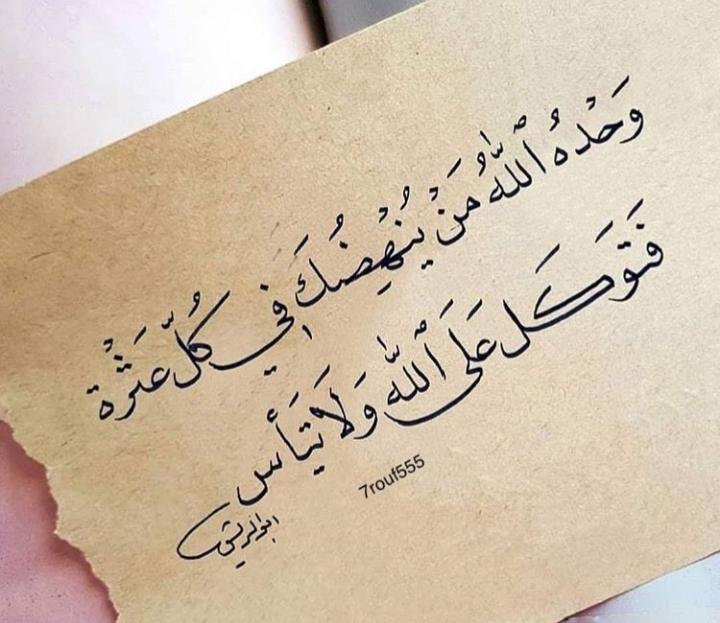 وَحْدَهُ ٱللَّٰهُ مَنْ يُنْهِضُكَ فِي كُلِّ عَثْرَة
فَتَوَكَل عَلَى ٱللَّٰه وَلَا تَيَأس
7rouf555